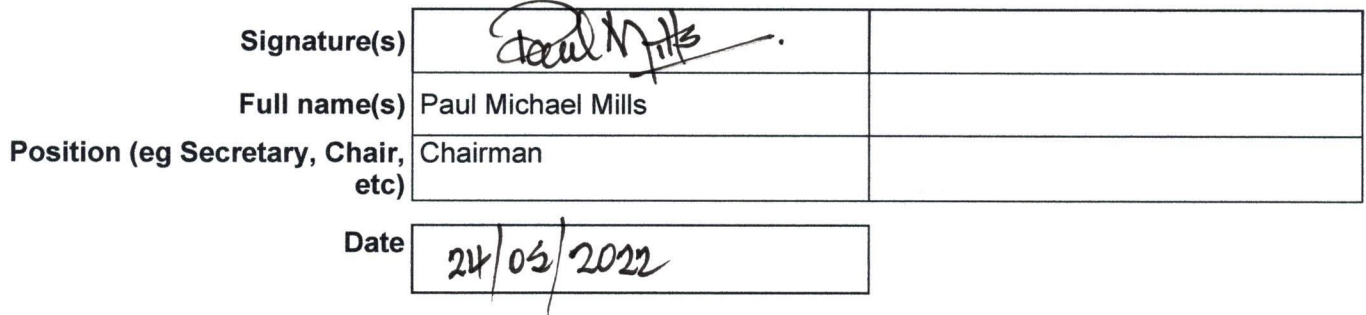 Signature(s) Paul Mills
Full name(s) Paul Michael Mills
Position (eg Secretary, Chair, Chairman
etc)
Date 24/05/2022